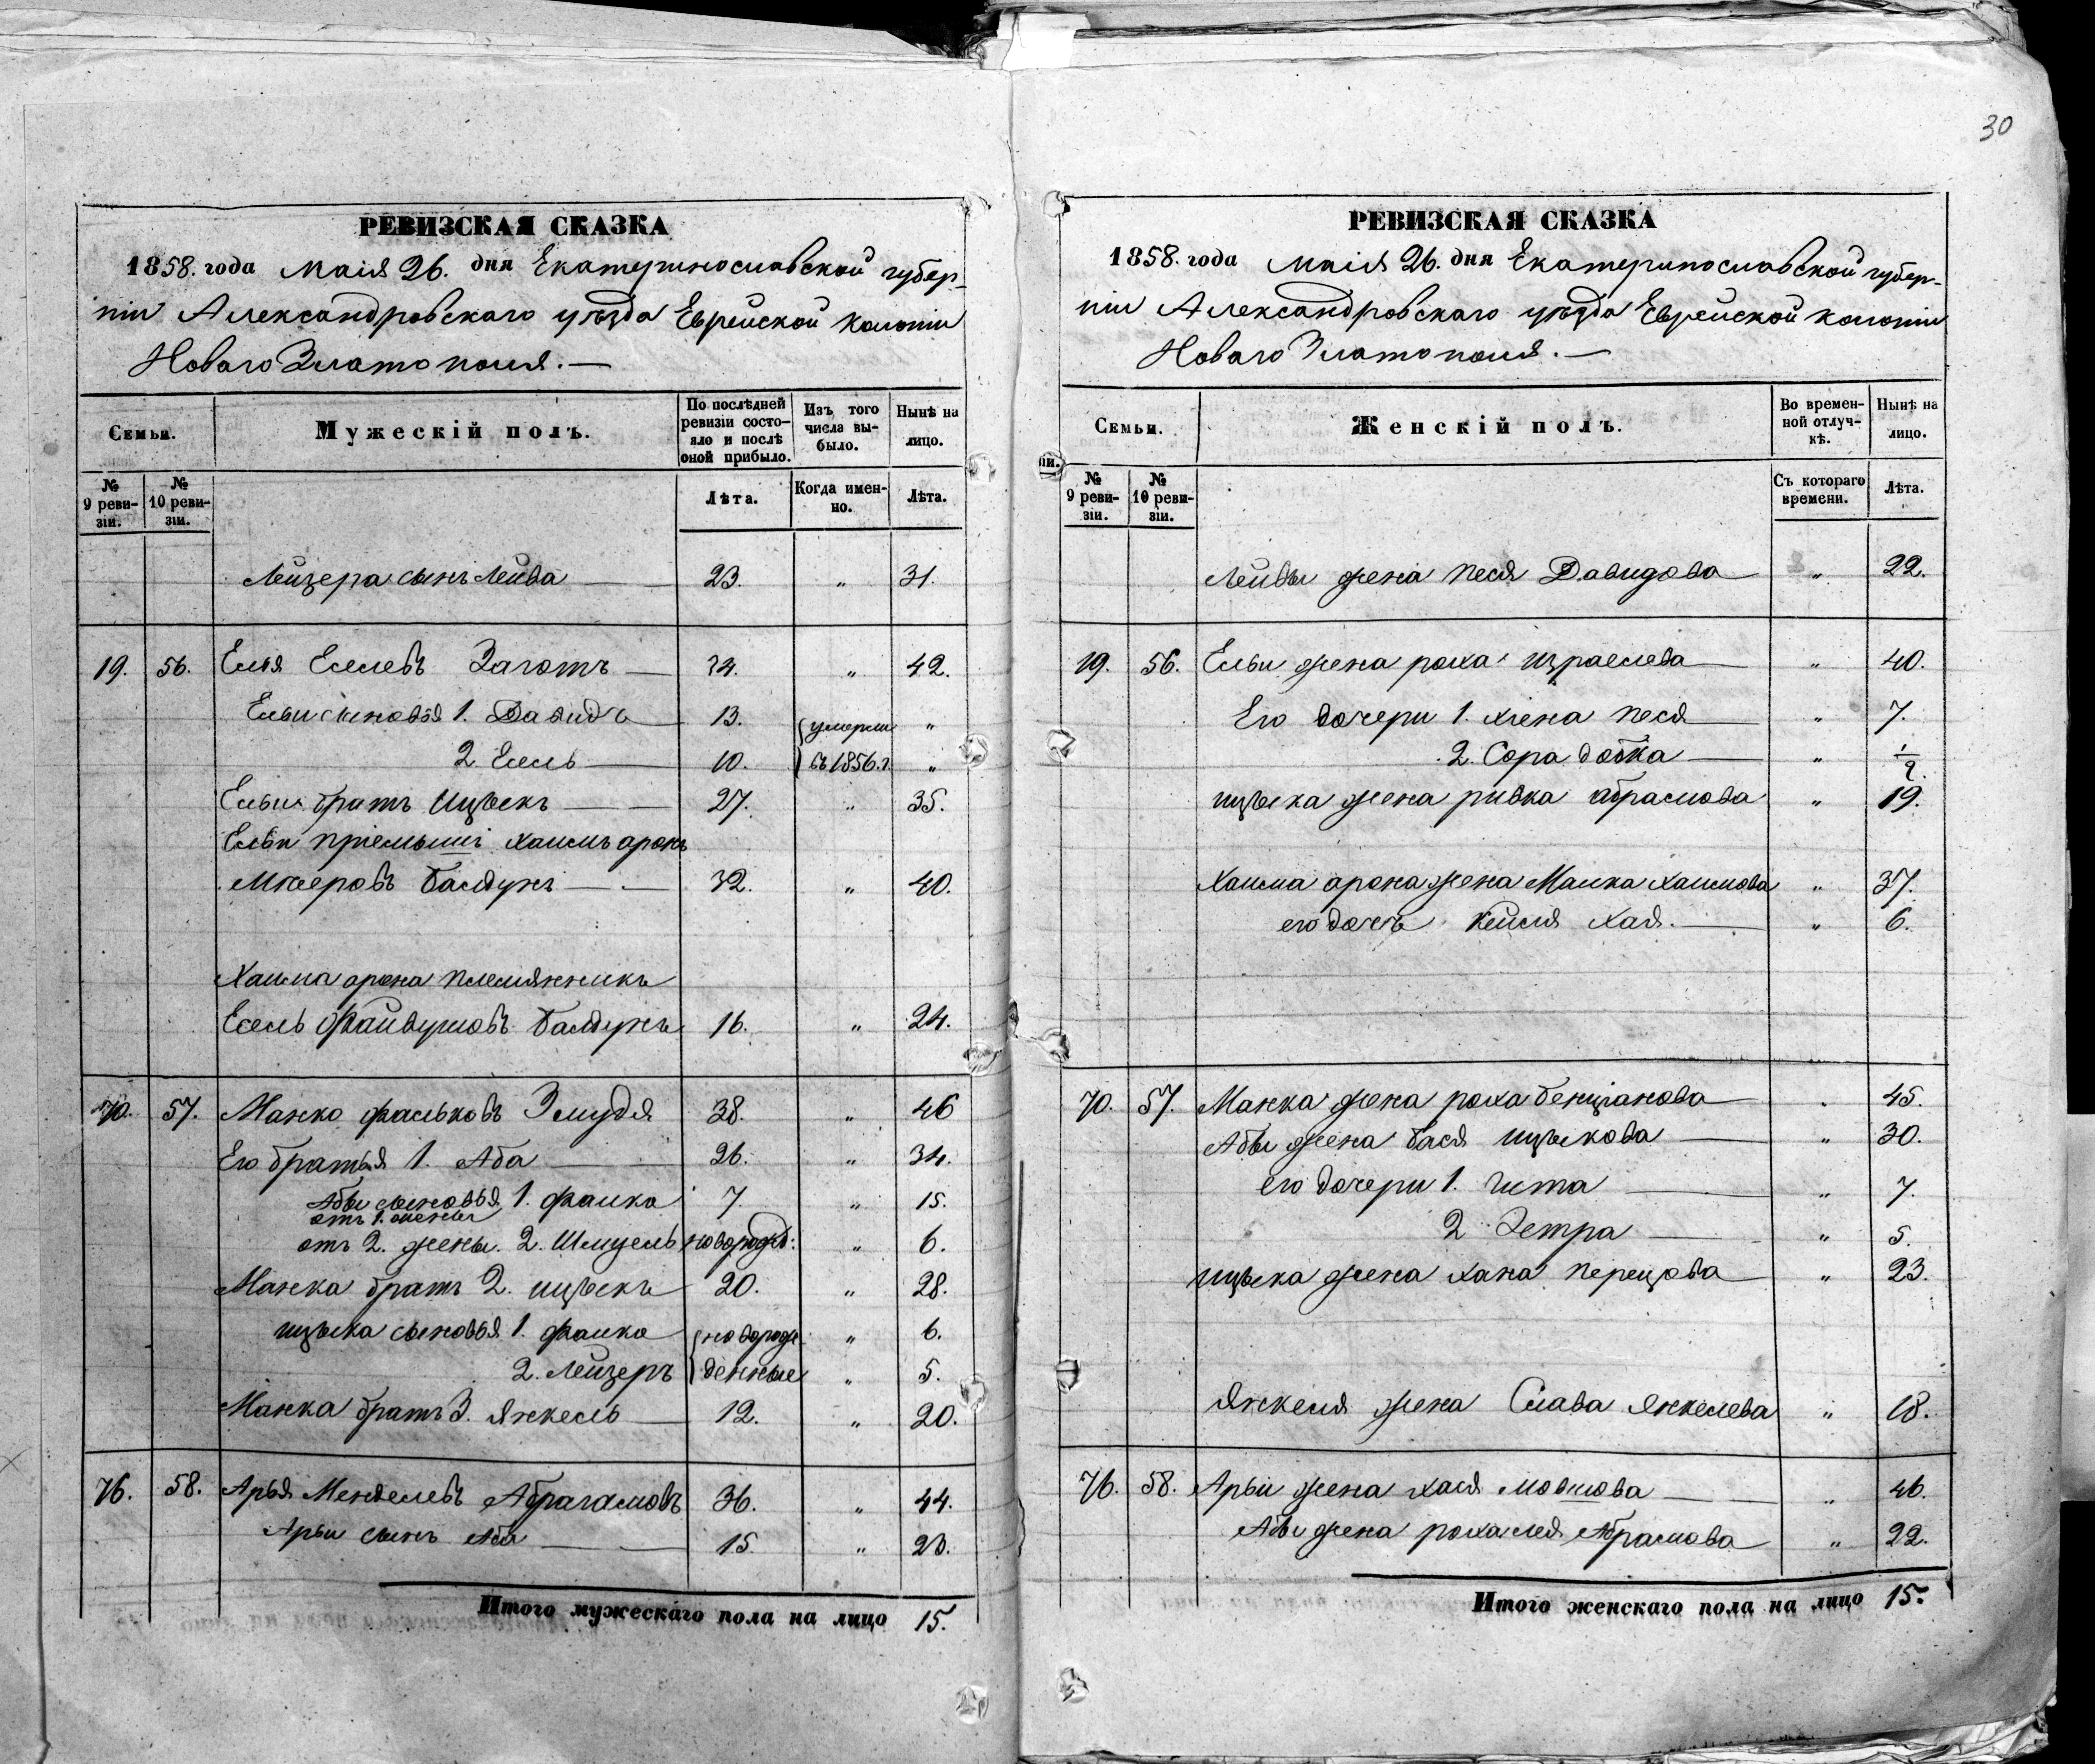 30
РЕВИЗСКАЯ СКАЗКА
1858. года Маія 26. дня Екатеринославской губер-
ніи Александровскаго уѣзда Еврейской колоніи
Новаго Златополя. —
Семьи.
Мужескій полъ.
По послѣдней ревизіи состо-яло и послѣ оной прибыло.
Изъ того числа вы-было.
Нынѣ на лицо.
№ 9 реви-зіи.
№ 10 реви-зіи.
Лѣта.
Когда имен-но.
Лѣта.
Лейзера сынъ Лейва — 23. „ 31.
19. 56. Елья Еселевъ — 34. „ 42.
Ельи сыновья 1. Давидъ — 13. умерли „
2. Есель — 10. въ 1856. г. „
Ельи братъ Ицъекъ — 27. „ 35.
Ельи пріемышъ Хаимъ аронъ
— 32. „ 40.
Хаима арона племянникъ
Есель Файвушовъ 16. „ 24.
70. 57. Манко Фальковъ Змудя 38. „ 46
Его братья 1. Аба — 26. „ 34.
Абы сыновья 1. Фалко 7. „ 15.
отъ 1. жены
отъ 2. жены. 2. Шмуель новорожд: „ 6.
Манка братъ 2. ицъекъ 20. „ 28.
ицъека сыновья 1. Фалко новорож „ 6.
2. Лейзеръ денные „ 5.
Манка братъ 3. Янкель — 12. „ 20.
76. 58. Арья Менделевъ Абрагамовъ 36. „ 44.
Арьи сынъ Аба — 15. „ 23.
Итого мужескаго пола на лицо 15.
РЕВИЗСКАЯ СКАЗКА
1858. года Маія 26. дня Екатеринославской губер-
ніи Александровскаго уѣзда Еврейской колоніи
Новаго Златополя. —
Семьи.
Женскій полъ.
Во времен-ной отлуч-кѣ.
Нынѣ на лицо.
№ 9 реви-зіи.
№ 10 реви-зіи.
Съ котораго времени.
Лѣта.
Лейвы жена Песя Давидова — „ 22.
19. 56. Ельи жена роха израелева — „ 40.
Его дочери 1. Песя — „ 7.
2. Сора — „ 1/2.
ицъека жена ривка абрамова „ 19.
Хаима арона жена Малка Хаимова „ 37.
его дочь Хая. — „ 6.
70. 57. Манка жена роха бенціанова — „ 45.
Абы жена бася ицъекова — „ 30.
его дочери 1. Гита — „ 7.
2. — „ 5.
ицъека жена хана перецова — „ 23.
Янкеля жена Слава Янкелева „ 18.
76. 58. Арьи жена хася мовшова — „ 46.
Абы жена рохамея Абрамова „ 22.
Итого женскаго пола на лицо 15.